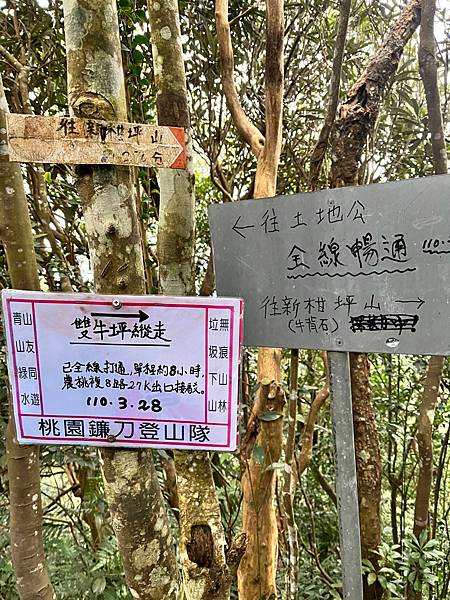 往新柑坪山
←往土地公
全線暢通 110.3
往新柑坪山 →
(牛背石)
雙牛坪縱走
青山綠水
山友同遊
已全線打通,單程約8小時,
農桃複8路27K出口接駁。
110.3.28
垃圾下山
無浪山林
桃園鐮刀登山隊